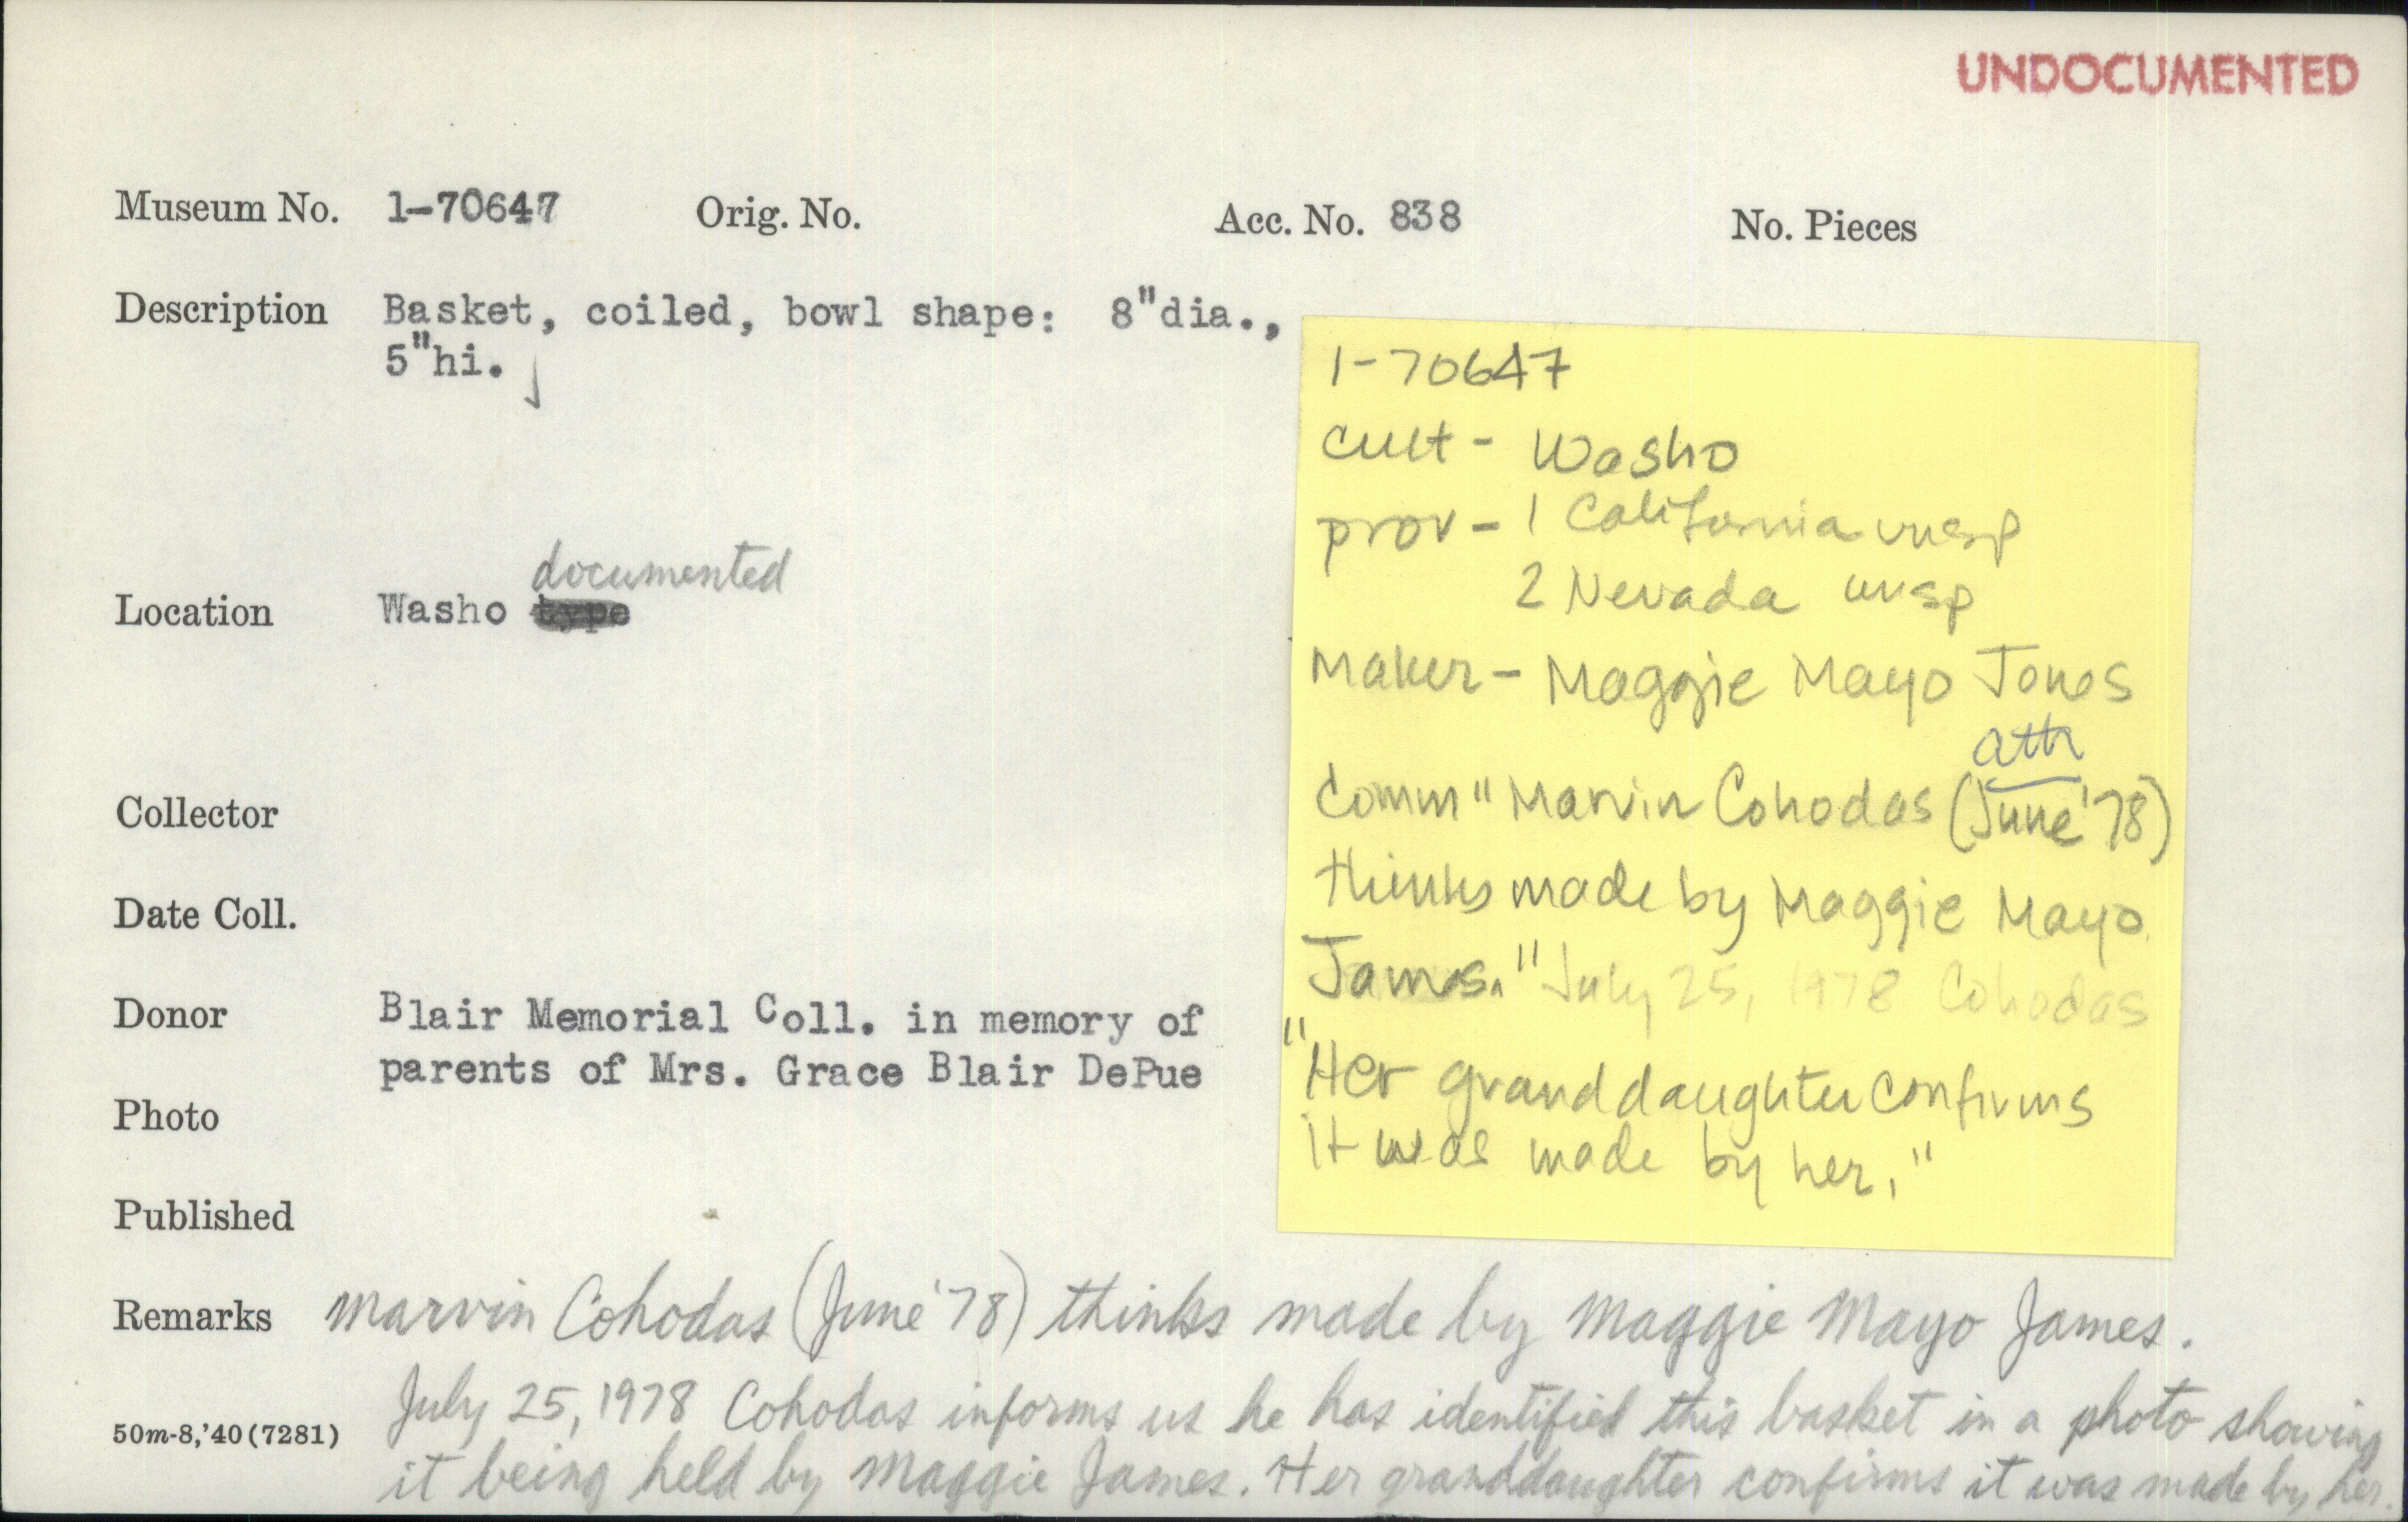 UNDOCUMENTED
Museum No. 1-70647 Orig. No. Acc. No. 838 No. Pieces
Description Basket, coiled, bowl shape: 8"dia.,
5"hi.
documented
Location Washo type
Collector
Date Coll.
Donor Blair Memorial Coll. in memory of
parents of Mrs. Grace Blair DePue
Photo
Published
Remarks Marvin Cohodas (June '78) thinks made by Maggie Mayo James.
July 25, 1978 Cohodas informs us he has identified this basket in a photo showing
50m-8,'40(7281)
it being held by Maggie James. Her granddaughter confirms it was made by her.
1-70647
cult - Washo
prov - 1 California unsp
2 Nevada unsp
Maker - Maggie Mayo Jones
attr
Comm " Marvin Cohodas (June '78)
thinks made by Maggie Mayo
James." July 25, 1978 Cohodas
"Her granddaughter confirms
it was made by her."